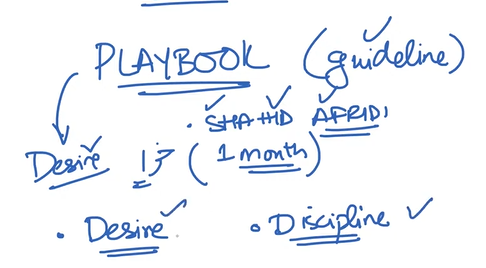 PLAYBOOK (guideline)
• SHAHID AFRIDI
Desire 1) (1 month)
• Desire • Discipline